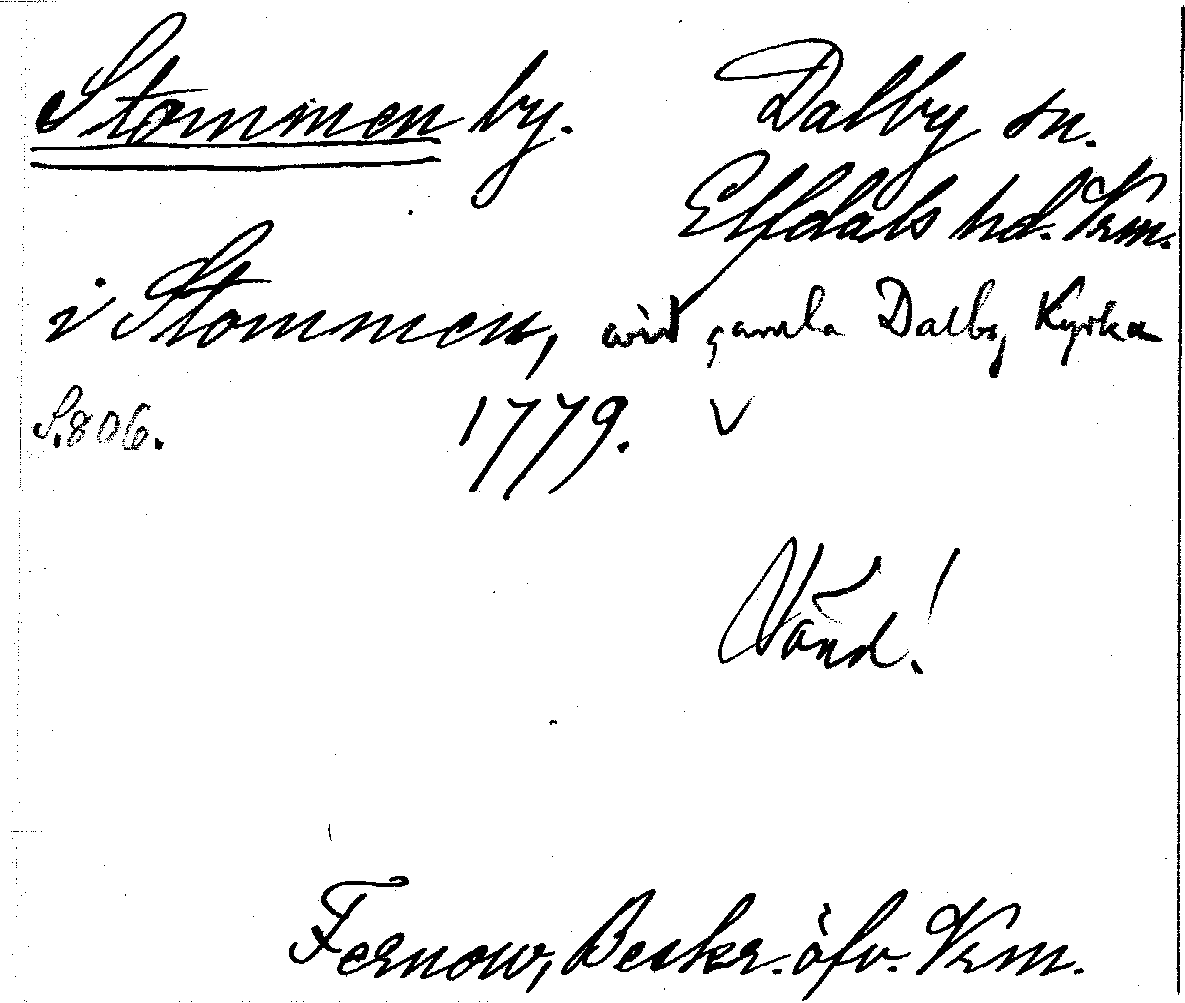 Stommen by. Dalby sn.
Elfdals hd. Vrm.
i Stommen, wid gamla Dalby Kyrka
S. 806. 1779. V
Vänd!
Fernow, Beskr. öfv. Vrm.